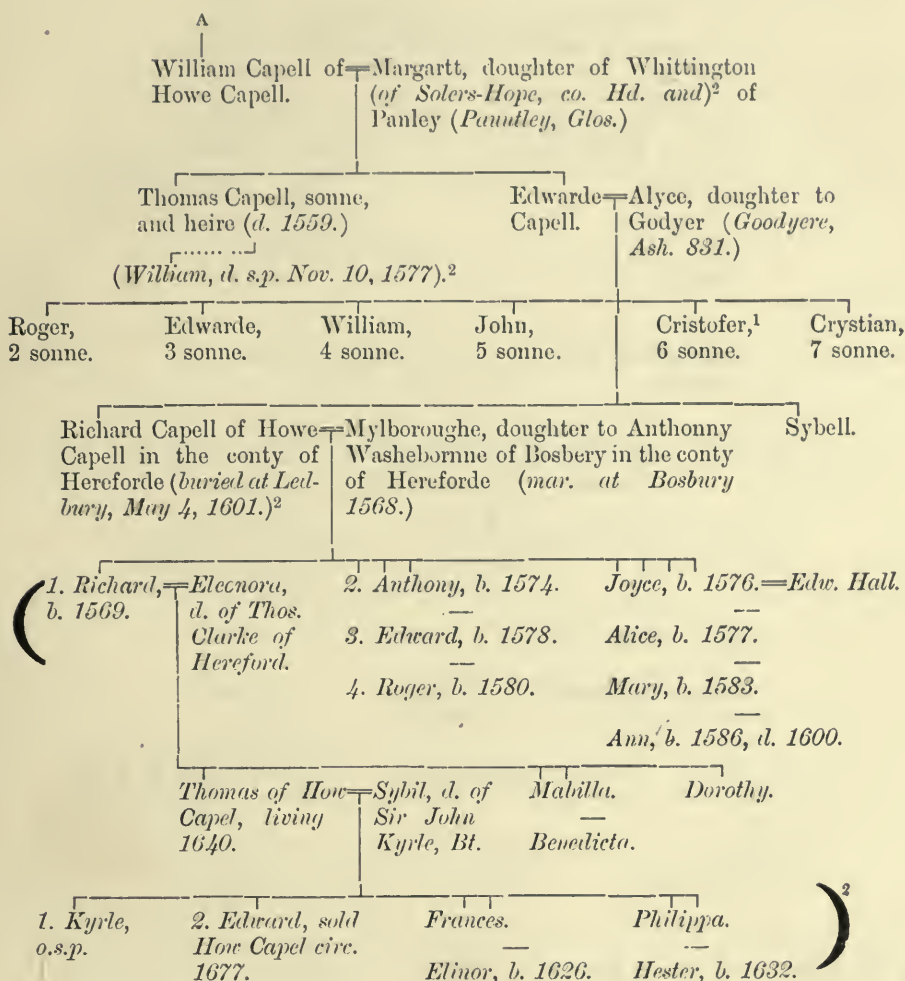 A
William Capell of Howe Capell. = Margartt, doughter of Whittington (of Solers-Hope, co. Hd. and)² of Panley (Pauntley, Glos.)
Thomas Capell, sonne, and heire (d. 1559.)
Edwarde Capell. = Alyce, doughter to Godyer (Goodyere, Ash. 831.)
(William, d. s.p. Nov. 10, 1577).²
Roger, 2 sonne.
Edwarde, 3 sonne.
William, 4 sonne.
John, 5 sonne.
Cristofer,¹ 6 sonne.
Crystian, 7 sonne.
Richard Capell of Howe Capell in the conty of Hereforde (buried at Ledbury, May 4, 1601.)² = Mylboroughe, doughter to Anthonny Washebornne of Bosbery in the conty of Hereforde (mar. at Bosbury 1568.)
Sybell.
(1. Richard, b. 1569. = Elecnora, d. of Thos. Clarke of Hereford.
2. Anthony, b. 1574.
3. Edward, b. 1578.
4. Roger, b. 1580.
Joyce, b. 1576. = Edw. Hall.
Alice, b. 1577.
Mary, b. 1583.
Ann, b. 1586, d. 1600.
Thomas of How Capel, living 1640. = Sybil, d. of Sir John Kyrle, Bt.
Mabilla.
Benedicta.
Dorothy.
1. Kyrle, o.s.p.
2. Edward, sold How Capel circ. 1677.
Frances.
Elinor, b. 1626.
Philippa.
Hester, b. 1632.)²